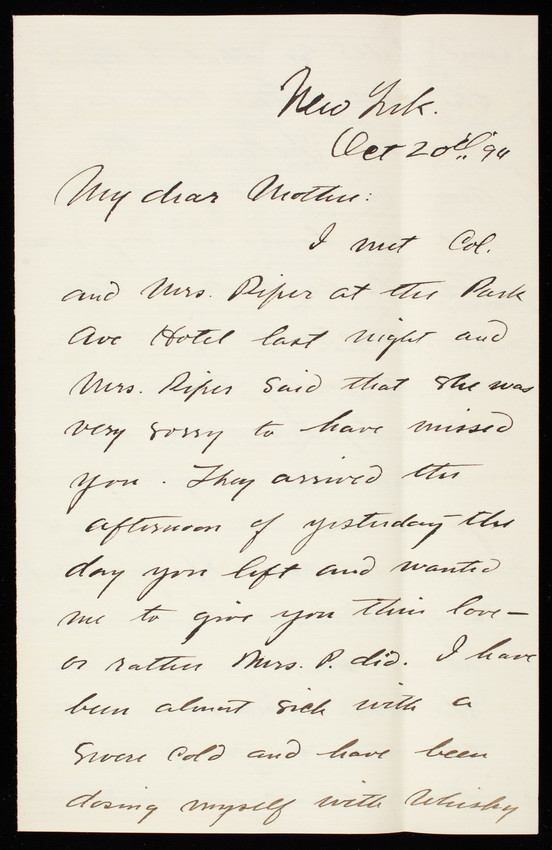 New York.
Oct 20th, 94
My dear Mother:
I met Col.
and Mrs. Piper at the Park
Ave Hotel last night and
Mrs. Piper said that she was
very sorry to have missed
you. They arrived the
afternoon of yesterday the
day you left and wanted
me to give you their love—
or rather Mrs. P. did. I have
been almost sick with a
severe cold and have been
dosing myself with Whisky